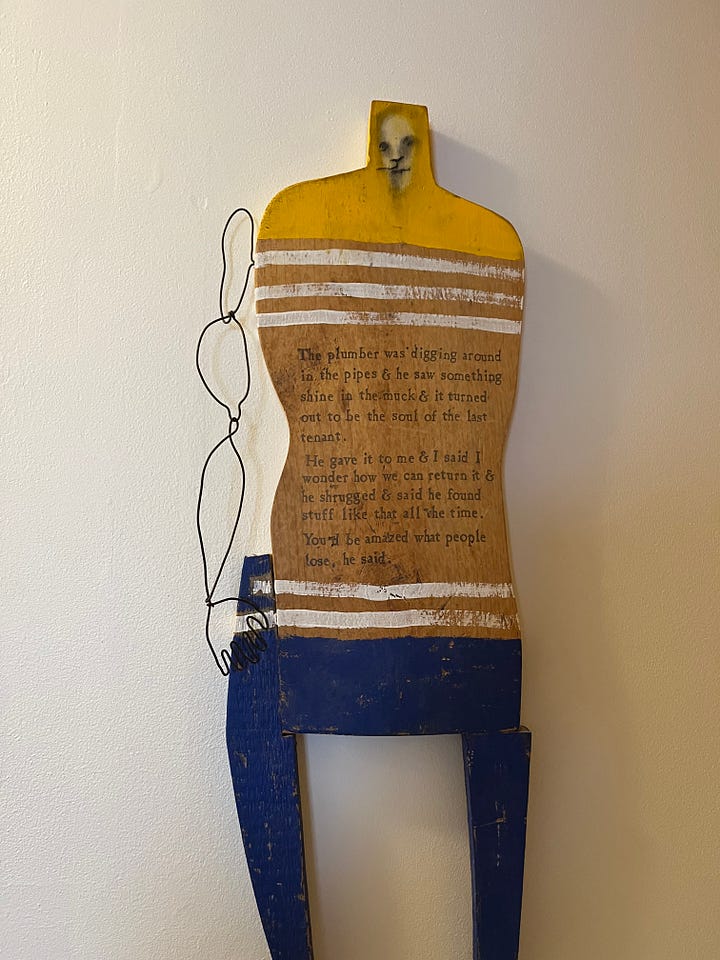 The plumber was digging around
in the pipes & he saw something
shine in the muck & it turned
out to be the soul of the last
tenant.
He gave it to me & I said I
wonder how we can return it &
he shrugged & said he found
stuff like that all the time.
You'd be amazed what people
lose, he said.